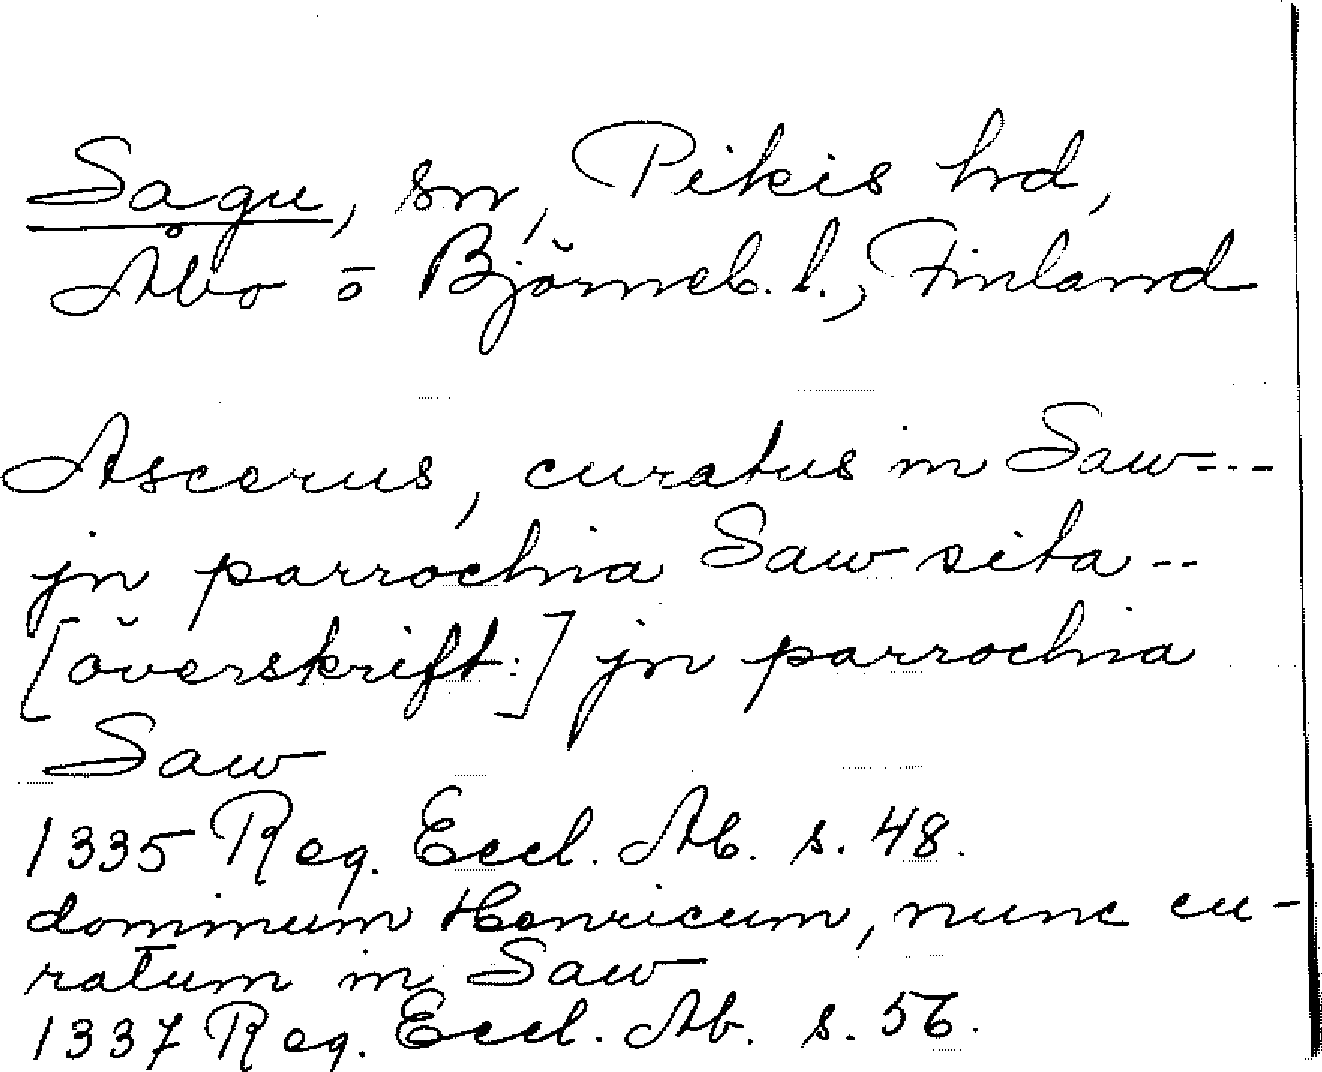 Sagu, sn, Pikis hrd,
Åbo o Björneb. l., Finland
Ascerus, curatus in Saw---
jn parrochia Saw sita--
[överskrift:] jn parrochia
Saw
1335 Reg. Eccl. Ab. s. 48.
dominum Henricum, nunc cu-
ratum in Saw
1337 Reg. Eccl. Ab. s. 56.